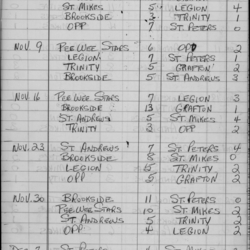 ST. MIKES 5 LEGION 4
BROOKSIDE 3 TRINITY 1
OPP 7 ST. PETERS 0
NOV. 9 PEE WEE STARS 6 OPP 2
LEGION 7 ST. PETERS 1
TRINITY 5 GRAFTON 1
BROOKSIDE 5 ST. ANDREWS 3
NOV. 16 PEE WEE STARS 7 LEGION 3
BROOKSIDE 13 GRAFTON 1
ST. ANDREWS 5 ST. MIKES 0
TRINITY 3 OPP 2
NOV. 23 ST. ANDREWS 7 ST. PETERS 4
BROOKSIDE 8 ST. MIKES 0
LEGION TRINITY 2
OPP 5 GRAFTON 2
NOV. 30 BROOKSIDE 11 ST. PETERS 0
PEE WEE STARS 10 ST. MIKES 2
ST. ANDREWS 5 TRINITY 2
OPP 4 LEGION 2